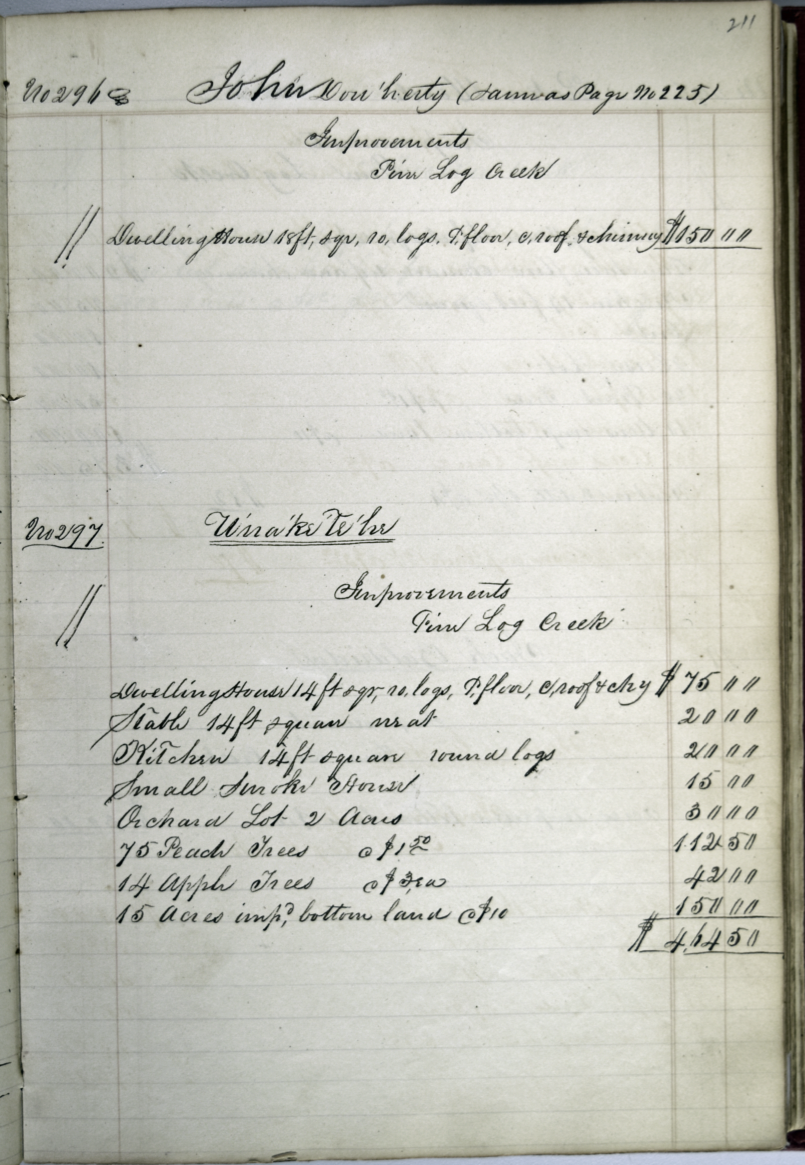 211
No 296 John Dou'herty (same as Page No 225)
Improvements
Pine Log Creek
// Dwelling House 18ft, sqr, ro, logs. P. floor, c, roof, & chimney $150 00
No 297. U'na'ke'Te'he
Improvements
// Pine Log Creek
Dwelling House 14ft sqr, ro, logs, P. floor, c, roof & chy $ 75 00
Stable 14ft square neat 20 00
Kitchen 14ft square round logs 20 00
Small Smoke House 15 00
Orchard Lot 2 Acres 30 00
75 Peach Trees @ $1 50 112 50
14 Apple Trees @ $3,00 42 00
15 Acres imp'd, bottom land @ $10 150 00
$ 464 50